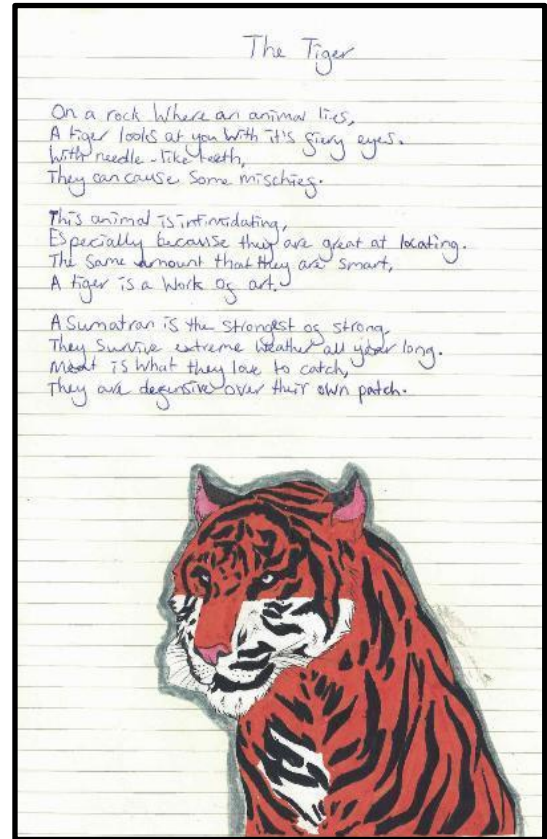 The Tiger
On a rock Where an animal lies,
A tiger looks at you with it's fiery eyes.
With needle-like teeth,
They can cause some mischief.
This animal is intimidating,
Especially because they are great at locating.
The same amount that they are smart,
A tiger is a work of art.
A Sumatran is the strongest of strong,
They survive extreme weather all year long.
Meat is what they love to catch,
They are defensive over their own patch.